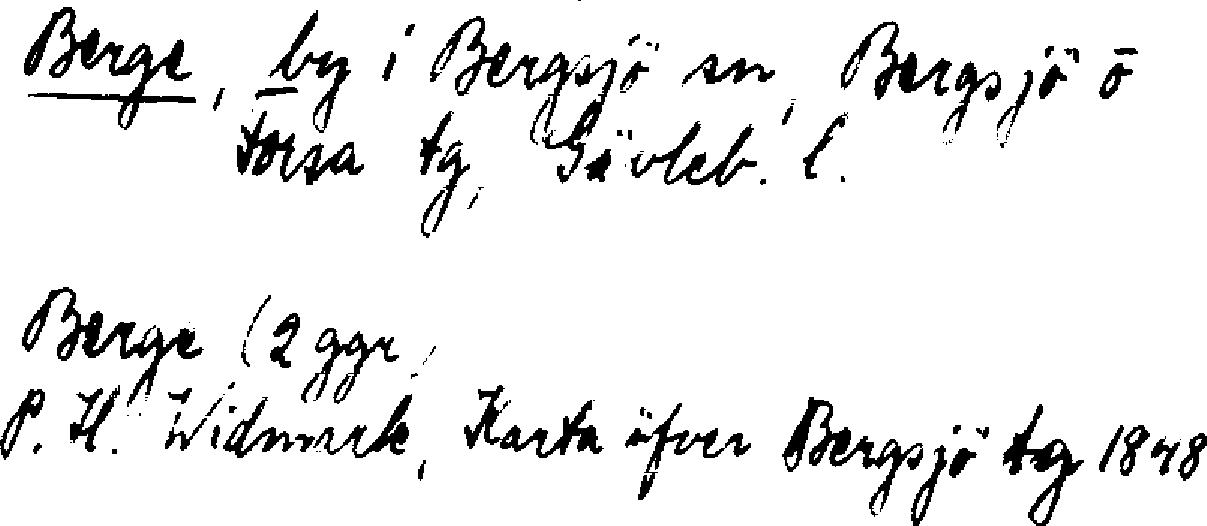 Berge, by i Bergsjö sn, Bergsjö o
Forsa tg, Gävleb. l.
Berge (2 ggr)
P. H. Widmark, Karta öfver Bergsjö tg 1848